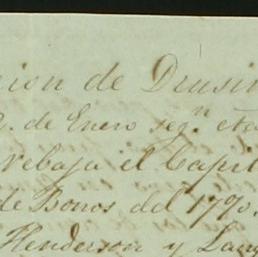 cion de Dinsin
de Enero segn
rebaja el Capi
de Bonos del 1790.
Henderson y